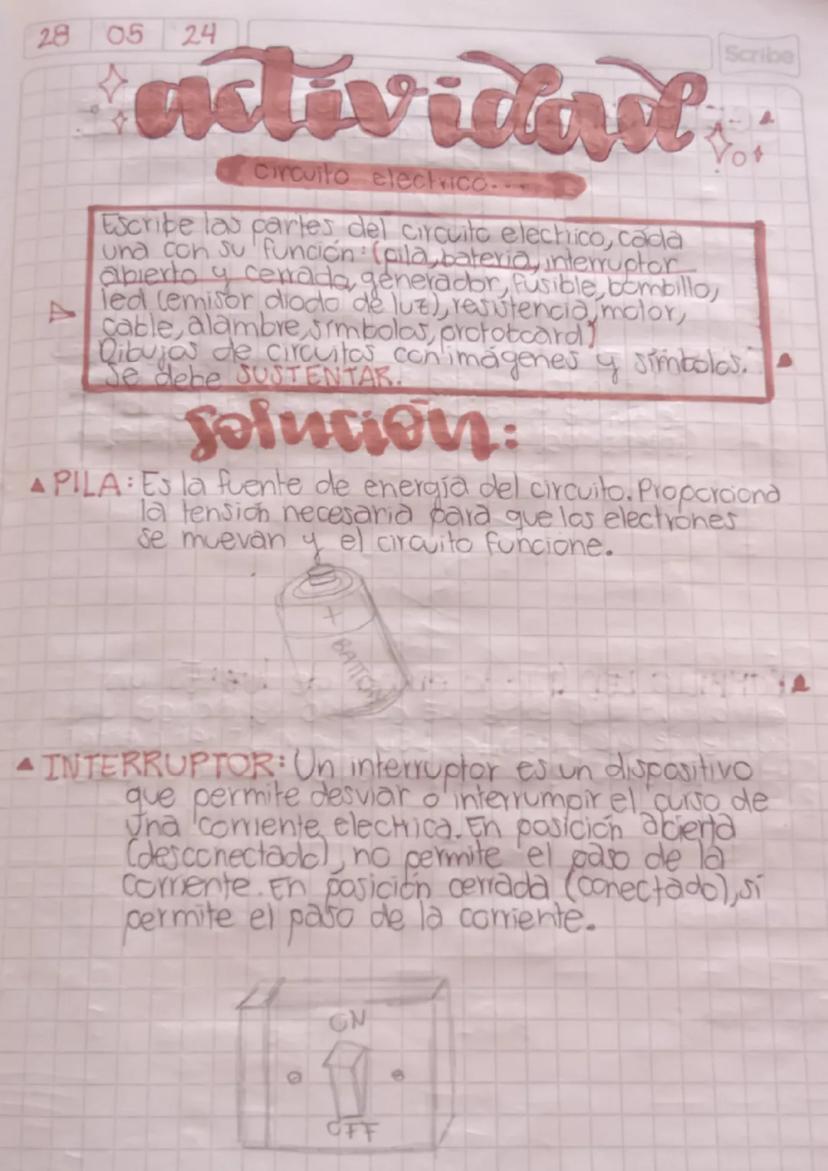 28 05 24
Scribe
actividad
circuito electrico....
Escribe las partes del circuito electrico, cada
una con su función: (pila, bateria, interruptor
abierto y cerrada, generador, fusible, bombillo,
led (emisor diodo de luz), resistencia, motor,
cable, alambre, símbolos, protoboard)
Dibujos de circuitos con imágenes y símbolos.
Se debe SUSTENTAR.
solución:
PILA: Es la fuente de energía del circuito. Proporciona
la tensión necesaria para que los electrones
se muevan y el circuito funcione.
+
INTERRUPTOR: Un interruptor es un dispositivo
que permite desviar o interrumpir el curso de
una corriente electrica. En posición abierta
(desconectado), no permite el paso de la
corriente. En posición cerrada (conectado), sí
permite el paso de la corriente.
ON
OFF